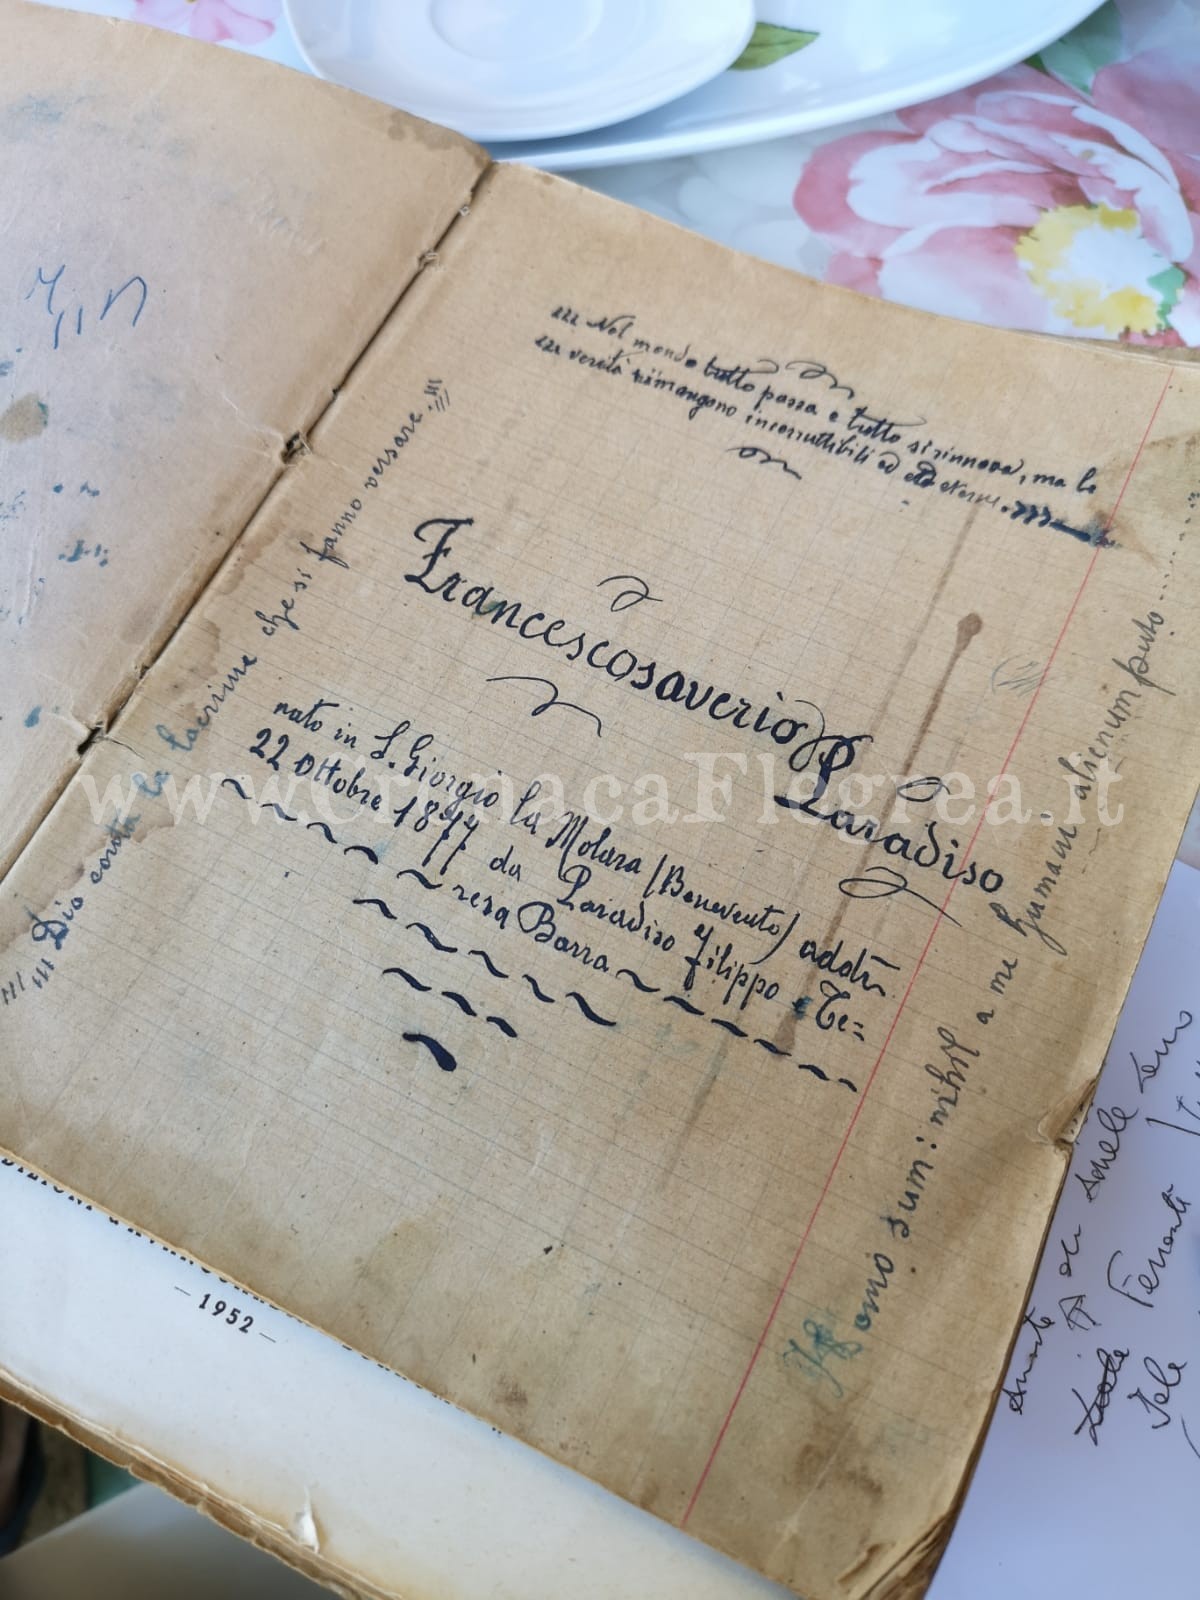 Nel mondo tutto passa e tutto si rinnova, ma le
verità rimangono incorruttibili ed eterne.
Francescosaverio Paradiso
nato in S. Giorgio la Molara (Benevento) addì
22 ottobre 1877 da Paradiso Filippo e Te=
resa Barra
Dio conta le lacrime che si fanno versare.
Homo sum: nihil a me humani alienum puto
www.CronacaFlegrea.it
— 1952 —